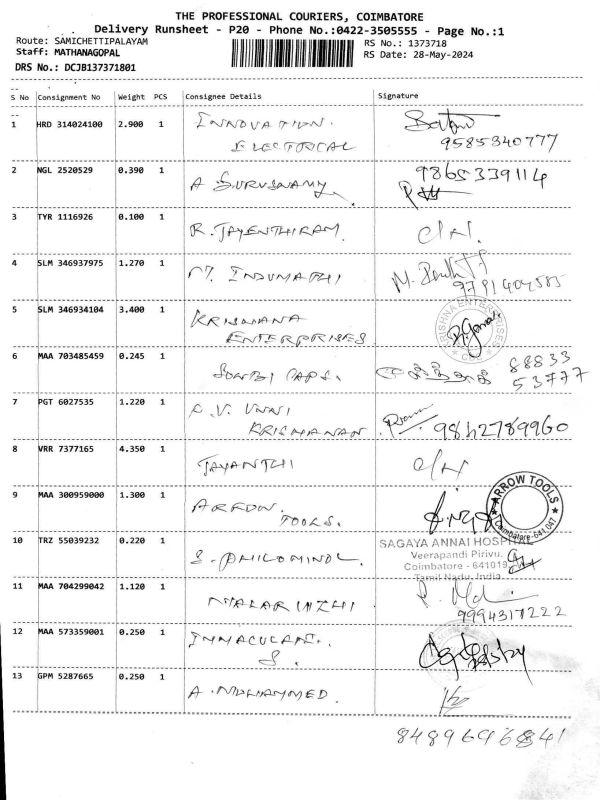 THE PROFESSIONAL COURIERS, COIMBATORE
Delivery Runsheet - P20 - Phone No.:0422-3505555 - Page No.:1
Route: SAMICHETTIPALAYAM
RS No.: 1373718
Staff: MATHANAGOPAL
RS Date: 28-May-2024
DRS No.: DCJB137371801
S No Consignment No Weight PCS Consignee Details Signature
1 HRD 314024100 2.900 1 INNOVATION
ELECTRICAL
9585340777
2 NGL 2520529 0.390 1 A
9865339114
3 TYR 1116926 0.100 1 R. JAYENTHIRAM
4 SLM 346937975 1.270 1 INDUMATHI
M.
5 SLM 346934104 3.400 1 KRISHNANA
ENTERPRISES
KRISHNA ENTERPRISES
6 MAA 703485459 0.245 1
88833
53777
7 PGT 6027535 1.220 1 V. UNNI
KRISHANAN
9842789960
8 VRR 7377165 4.350 1 JAYANTHI
9 MAA 300959000 1.300 1
TOOLS.
ARROW TOOLS
Coimbatore-641 047
10 TRZ 55039232 0.220 1 S.
SAGAYA ANNAI HOSPITAL
Veerapandi Pirivu.
Coimbatore - 641019
Tamil Nadu, India
11 MAA 704299042 1.120 1 MALARVIZHI
9994317222
12 MAA 573359001 0.250 1
S.
13 GPM 5287665 0.250 1 A. MOHAMMED.
8489696841